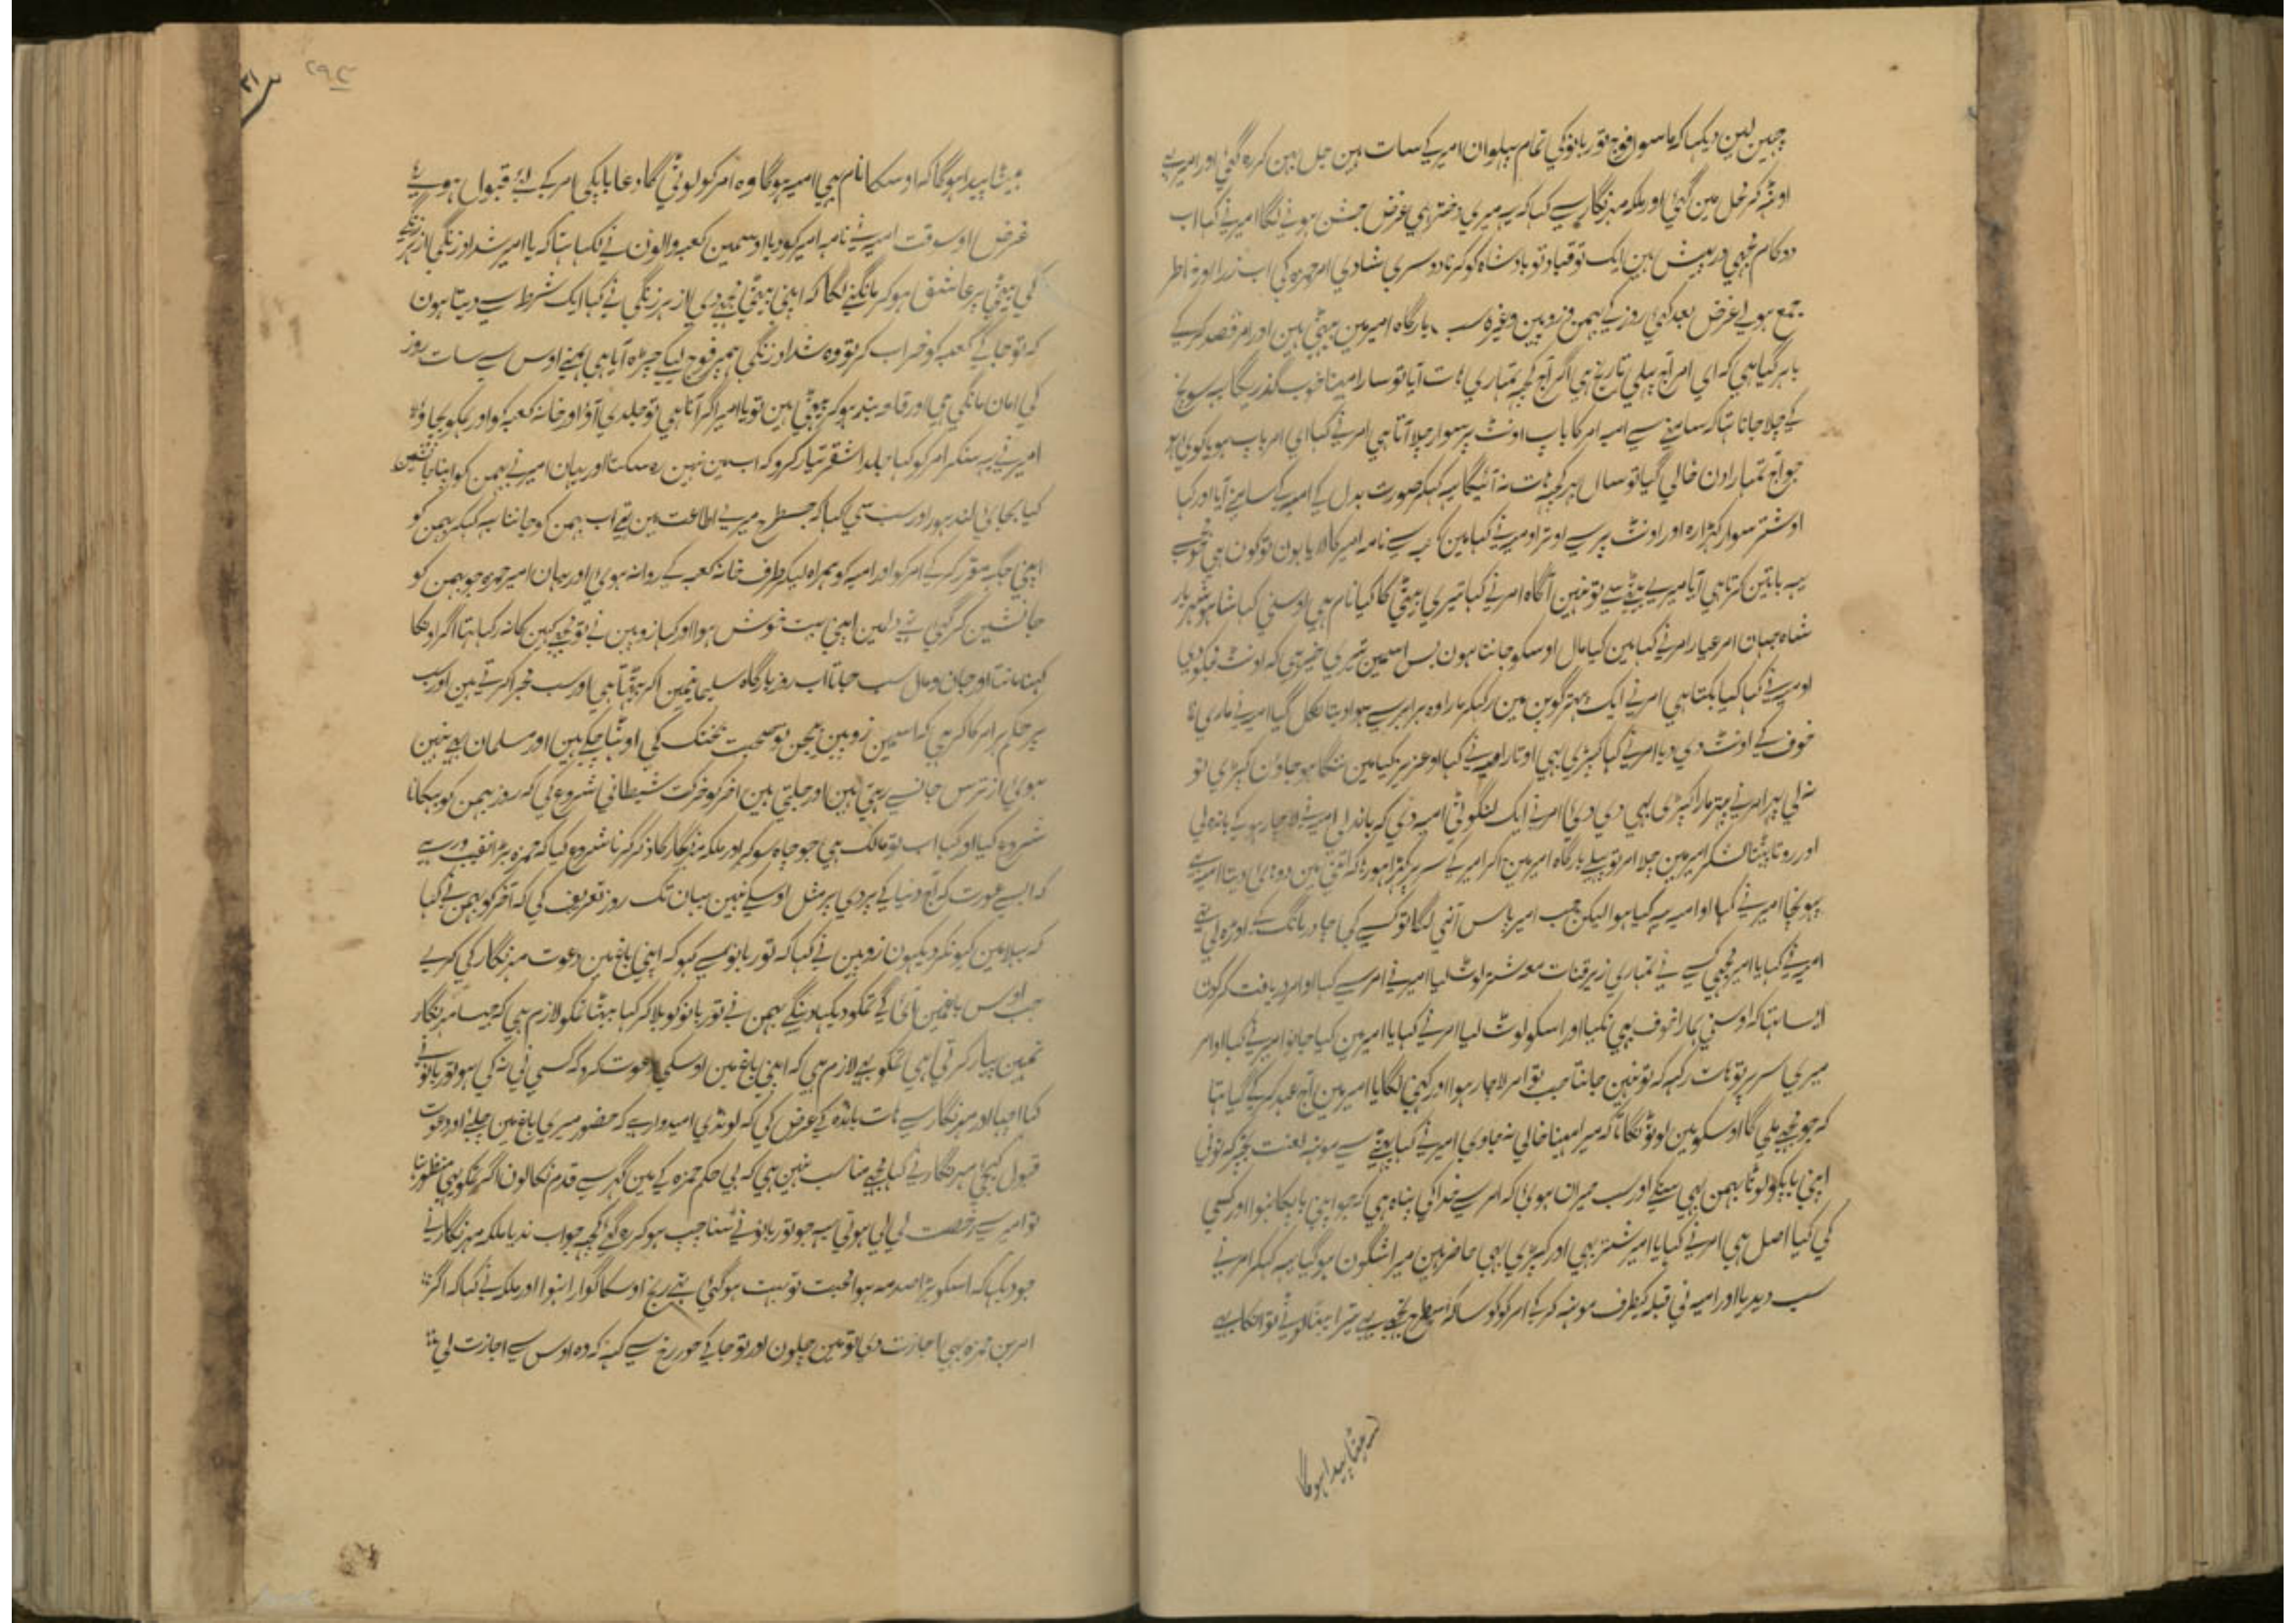 چین لیین دیکہا کہ ماسوا فوج نور بانو کی تمام پہلوان امیر کے سات ہین جل بہن کر رہ گئی اور امیر سے
اوٹہہ کر محل مین گئی اور ملکہ مہرنگار سے کہا کہ یہ میری دختر ہی غرض جشن ہونے لگا امیر نے کہا اب
دو کام مجہی درپیش ہین ایک تو قباد کو بادشاہ کرنا دوسری شادی امر حمزہ کی اب زرا اور خاطر
جمع ہوے غرض بعد کئی روز کے بہمن و زوبین وغیرہ سب بارگاہ امیر مین بیٹھی ہین اور امر قصد کر کے
باہر گیا ہی کہ ای امر آج پہلی تاریخ ہی اگر آج کچہہ تمہاری ہات آیا تو سارا مہینا خوب گذریگا یہ سونچ
کے چلا جاتا تہا کہ سامنے سے امیہ امر کا باپ اونٹ پر سوار چلا آتا ہی امر نے کہا ای امر باپ ہو یا کوئی
جو آج تمہارا دن خالی گیا تو سال بہر کچہہ ہات نہ آئیگا یہ کہکر صورت بدل کے امیہ کے سامنے آیا اور کہا
او شتر سوار کہڑا رہ اور اونٹ پر سے اوتر اومیہ نے کہا مین کعبہ سے نامہ امیر کا لایا ہون تو کون ہی جو مجہسے
یہہ باتین کرتا ہی آیا میرے بیٹے سے تو نہین آگاہ امر نے کہا تیری بیٹی کا کیا نام ہی اوسنی کہا شاہ شہریار
شاہ جہان امر عیار امر نے کہا مین کیا مال اوسکو جانتا ہون بس اسمین تیری خیر ہی کہ اونٹ مجکو دی
اومیہ نے کہا کیا بکتا ہی امر نے ایک پتہر گوپن مین رکہکر مارا وہ برابر سے ہوا دیتا نکل گیا امیہ نے ماری
خوف کے اونٹ دی دیا امر نے کہا کپڑی بہی اوتار امیہ نے کہا او عزیز کیا مین ننگا ہو جاون کپڑی تو
نہ لی پہر امر نے پتہر مارا کپڑی بہی دی دئی امر نے ایک لنگوٹی امیہ دی کہ باندہ لی امیہ نے لاچار ہو کے باندہ لی
اور روتا پیٹتا لشکر امیر مین چلا امر تو پہلے بارگاہ امیر مین آکر امیر کے سر پر کہڑا ہورہا کہ اتنی مین دوہائی دیتا امیہ
پہونچا امیر نے کہا او امیہ یہ کیا ہوا لیکن جب امیر پاس آنی لگا تو کسے کی چادر مانگ کے اوڑہ لی تہے
امیہ نے کہا یا امیر مجہی کسے نے تمہاری زیر قنات معہ شتر لوٹ لیا امیر نے امر سے کہا او امر دریافت کر کون
ایسا تہا کہ اوسنی ہمارا خوف بہی نکیا اور اسکو لوٹ لیا امر نے کہا یا امیر مین کیا جانو امیر نے کہا او امر
میری سر پر تو ہات رکہہ کہ تو نہین جانتا جب تو امر لاچار ہوا اور کہنی لگا یا امیر مین آج عہد کر کے گیا تہا
کہ جو مجہے ملی گا اوسکو مین لوٹونگا تاکہ میرا مہینا خالی نہ جاوی امیر نے کہا یعنے سے مونہہ لعنت تجہپر کہ تونی
اپنی باپکو لوٹا بہمن بہی ہنسکے اور سب حیران ہوئی کہ امر سے خدا کی پناہ ہی کہ جو اپنی باپکا نہوا اور کسی
کی کیا اصل ہی امر نے کہا یا امیر شتر بہی اور کپڑی بہی حاضر ہین میرا شگون ہو گیا یہہ کہکر امر نے
سب دیدیا اور امیہ نی قبلہ کیطرف مونہہ کر کے امر کو کوسا کہ اسیطرح تجہے بہے تیرا بیٹا لوٹے تو اتکا ہے
بیٹا پیدا ہوگا

بیٹا پیدا ہوگا کہ اوسکا نام بہی امیہ ہوگا وہ امر کو لوٹی گا دعا باپکی امر کے لئے قبول ہوے
غرض اوسوقت امیہ نے نامہ امیر کو دیا اوسمین کعبہ والون نے لکہا تہا کہ یا امیر شداد زنگی از ہر زنگے
کی بیٹی پر عاشق ہو کر مانگنے لگا کہ اپنی بیٹی مجہے دی از ہر زنگی نے کہا ایک شرط سے دیتا ہون
کہ تو جا کے کعبہ کو خراب کر تو وہ شداد زنگی ہمپر فوج لیکے چڑہ آیا ہی ہمنے اوس سے سات روز
کی امان مانگی ہی اور قلعہ بند ہو کر بیٹھی ہین تو یا امیر اگر آنا ہی تو جلدی آؤ اور خانہ کعبہ کو اور ہمکو بچاؤ
امیر نے یہ سنکر امر کو کہا جلد اشقر تیار کرو کہ اب مین نہین رہ سکتا اور یہان امیر نے بہمن کو اپنا جانشین
کیا بہائی لندہور اور سب سے کہا کہ جسطرح میرے اطاعت مین تہے اب بہمن کو جاننا یہ کہکر بہمن کو
اپنی جگہ مقرر کر کے امر کو اور امیہ کو ہمراہ لیکر طرف خانہ کعبہ کے روانہ ہوئی اور یہان امیر حمزہ جو بہمن کو
جانشین کر گئی تہے دلمین اپنی بہت خوش ہوا اور کہا زوبین نے تو مجہے کہین کا نہ رکہا تہا اگر اوسکا
کہنا مانتا اور جان و مال سب جاتا اب روز بارگاہ سلیمانیمین آکر بیٹہتا ہی اور سب مجرا کرتے ہین اور سب
پر حکم پر امر کا اکر ہی کہ اسمین زوبین بیجن تو صحبت بہنگ کی اوٹہا چکے ہین اور مسلمان بہے نہین
ہوئی از ترس جانسے رہتی ہین اور جلتی ہین آخر کو حرکت شیطانی شروع کی کہ روز بہمن کو بہکانا
شروع کیا اور کہا اب تو مالک ہی جو چاہ سو کر اور ملکہ مہرنگار کا ذکر کرنا شروع کیا کہ حمزہ بڑا نصیب ور ہے
کہ ایسے عورت کہ آج دنیا کے پردی پر مثل اوسکے نہین یہان تک روز تعریف کی کہ آخر کو بہمن نے کہا
کہ بہلا مین کیونکر دیکہون زوبین نے کہا کہ نور بانو سے کہو کہ اپنی باغ مین دعوت مہرنگار کی کرے
جب اوس باغمین آئی گے تمکو دیکہا دینگے بہمن نے نور بانو کو بلا کر کہا بیٹا تمکو لازم ہی کہ جیسا مہرنگار
تمہین پیار کرتی ہی تمکو بہے لازم ہی کہ اپنی باغ مین اوسکی دعوت کرو کہ کسی نی نہ کی ہو نور بانو نے
کہا اچہا اور مہرنگار سے ہات باندہ کے عرض کی کہ لونڈی امیدوار ہے کہ حضور میری باغ مین چلئے اور دعوت
قبول کیجئے مہرنگار نے کہا مجہے مناسب نہین ہی کہ بی حکم حمزہ کے مین گہر سے قدم نکالون اگر تمکو یہی منظور تہا
تو امیر سے رخصت لی لی ہوتی یہہ جو نور بانو نے سنا چپ ہو کر رہ گئے کچہہ جواب ندیا ملکہ مہرنگار نے
جو دیکہا کہ اسکو بڑا صدمہ ہوا محبت تو بہت ہو گئی تہے رنج اوسکا گوارا نہوا اور ملکہ نے کہا کہ اگر
امر بن حمزہ بہی اجازت دی تو مین چلون اور تو جا کے حور رخ سے کہہ کہ وہ اوس سے اجازت لی